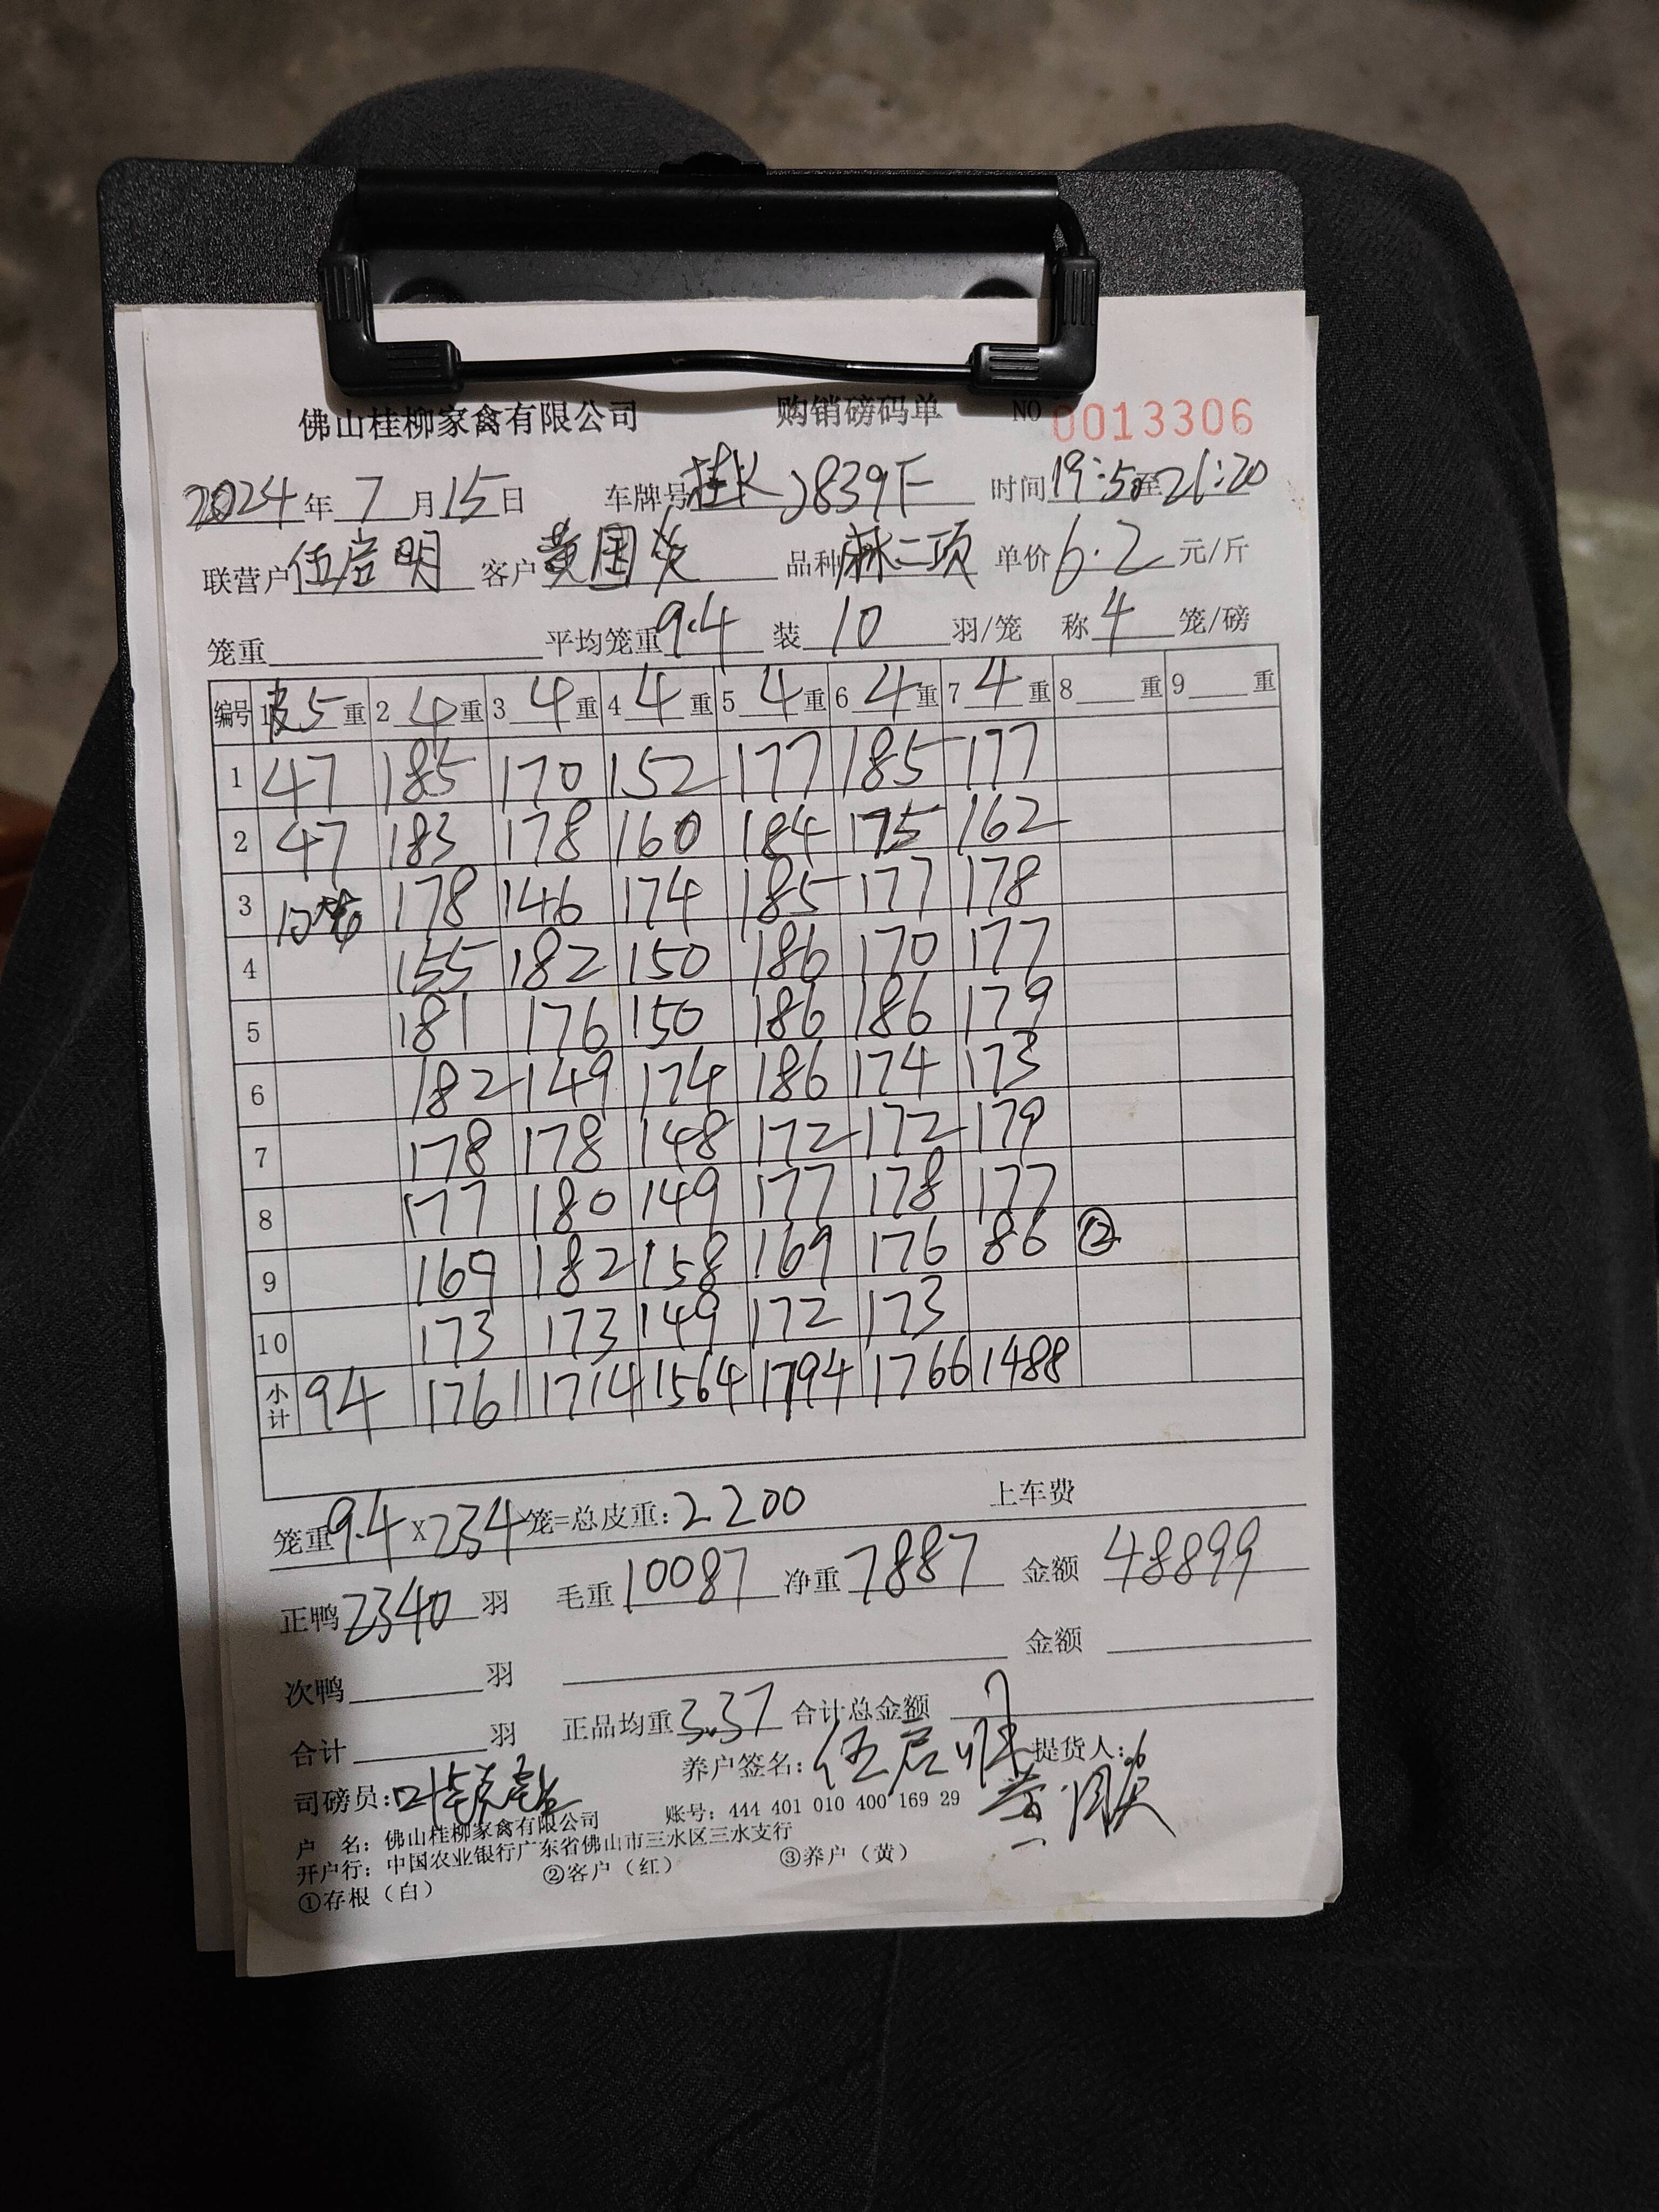 佛山桂柳家禽有限公司 购销磅码单 NO 0013306
2024年7月15日 车牌号桂K 839F 时间19:50至21:20
联营户伍启明 客户黄国 品种麻二项 单价6.2元/斤
笼重 平均笼重9.4 装10羽/笼 称4笼/磅
编号 1皮5重 2 4重 3 4重 4 4重 5 4重 6 4重 7 4重 8 重 9 重
1 47 185 170 152 177 185 177
2 47 183 178 160 184 175 162
3 10笼 178 146 174 185 177 178
4 155 182 150 186 170 177
5 181 176 150 186 186 179
6 182 149 174 186 174 173
7 178 178 148 172 172 179
8 177 180 149 177 178 177
9 169 182 158 169 176 86 ②
10 173 173 149 172 173
小计 94 1761 1714 1564 1794 1766 1488
笼重9.4×234笼=总皮重:2200 上车费
正鸭2340羽 毛重10087 净重7887 金额48899
次鸭 羽 金额
合计 羽 正品均重3.37 合计总金额
司磅员:叶 养户签名:伍启明 提货人:黄国
户 名:佛山桂柳家禽有限公司 账号:444 401 010 400 169 29
开户行:中国农业银行广东省佛山市三水区三水支行
①存根(白) ②客户(红) ③养户(黄)